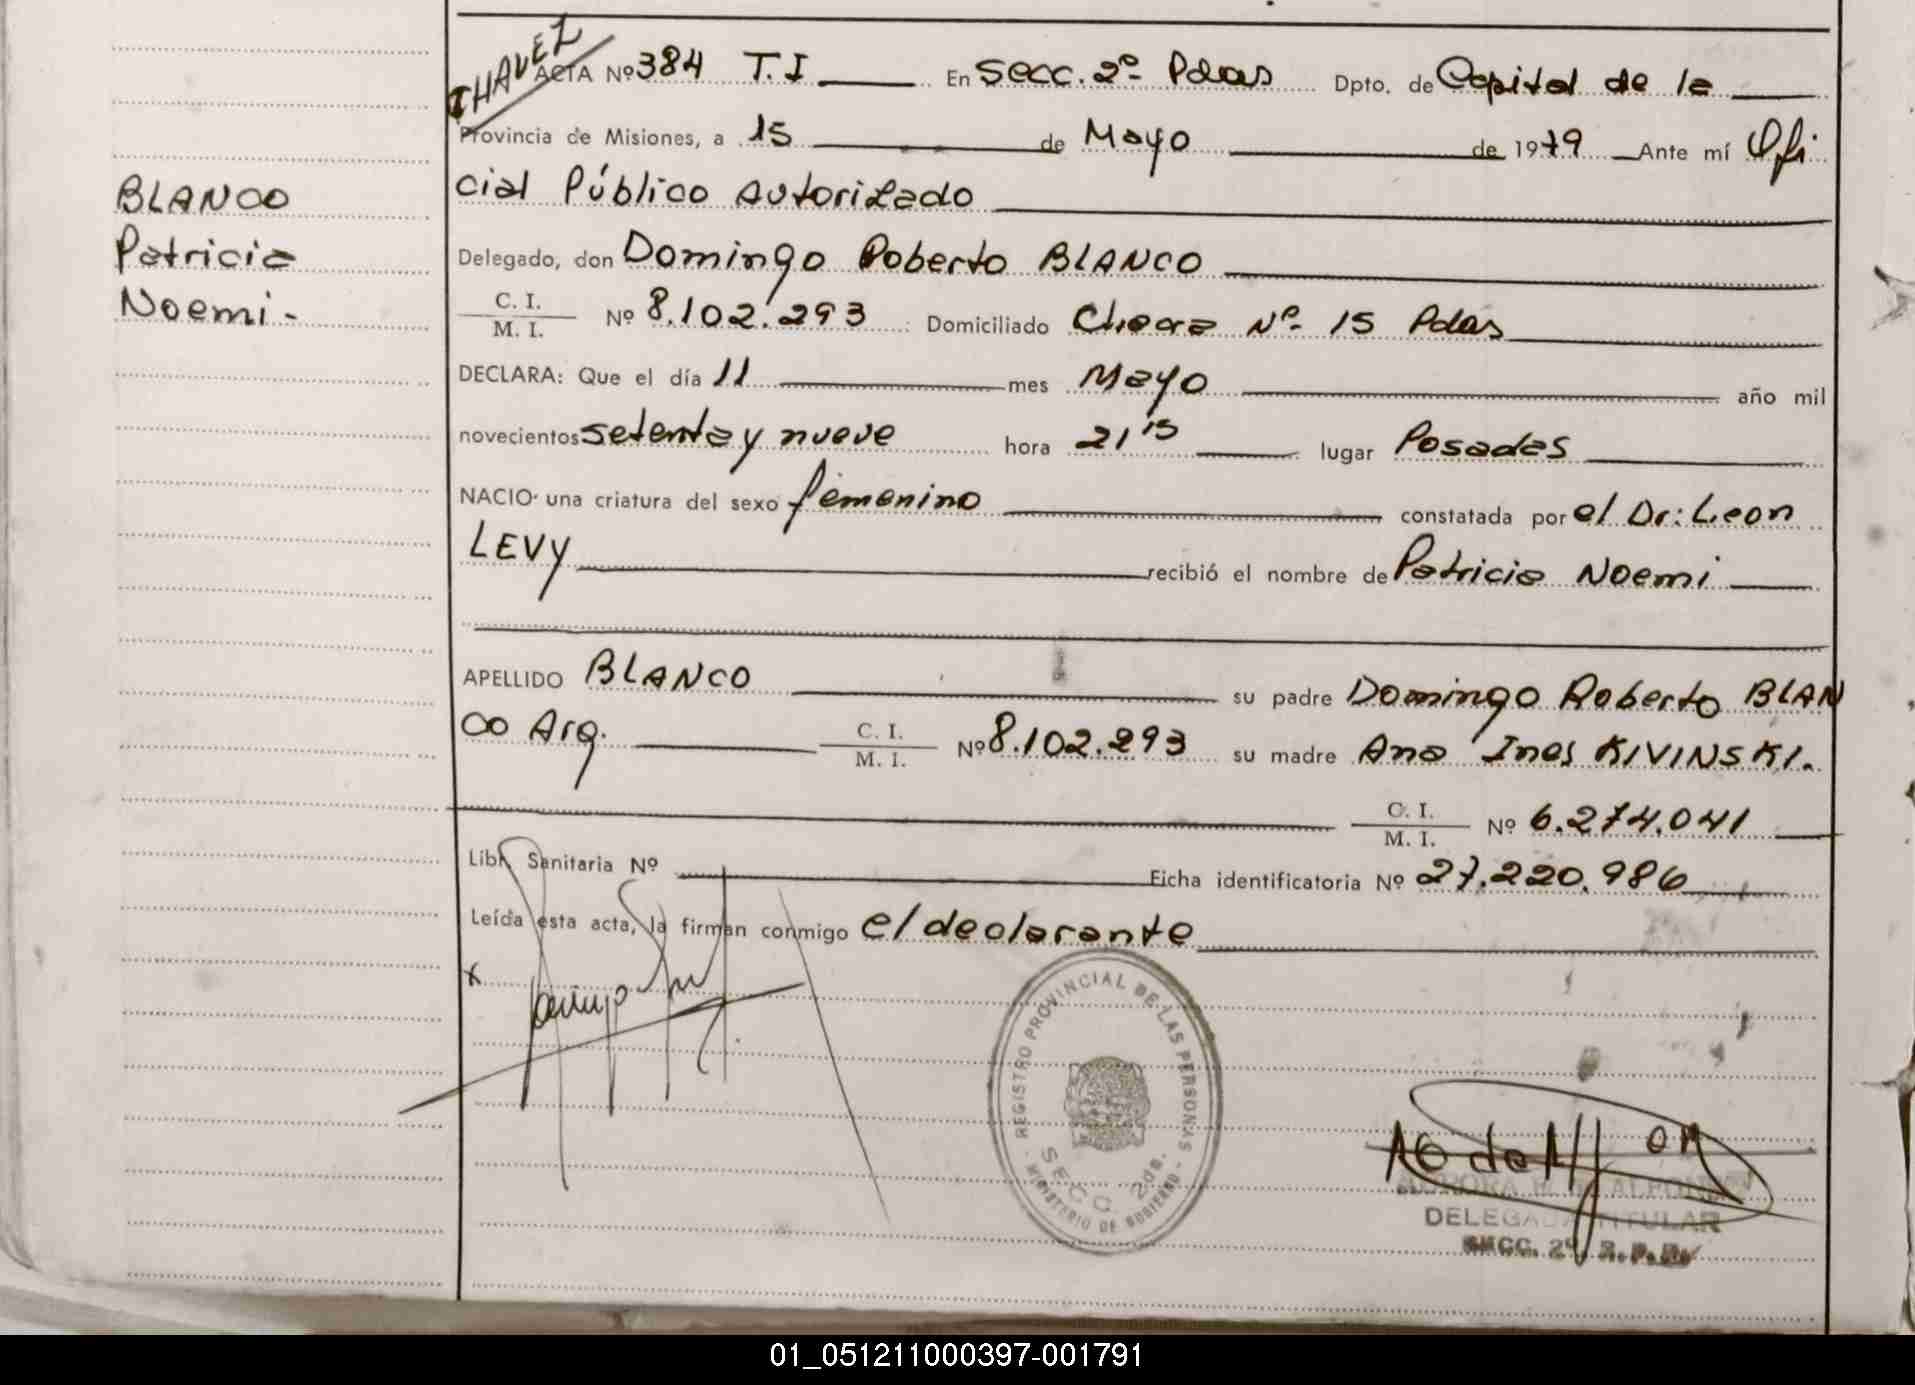 CHAVEZ
ACTA Nº 384 T. I En Secc. 2º- Pdas Dpto. de Capital de la
Provincia de Misiones, a 15 de Mayo de 1979 Ante mí Ofi
cial Público Autorizado
BLANCO
Patricia
Noemi-
Delegado, don Domingo Roberto BLANCO
C. I.
M. I. Nº 8.102.293 Domiciliado Chacra Nº- 15 Pdas
DECLARA: Que el día 11 mes Mayo año mil
novecientos setenta y nueve hora 21 15 lugar Posadas
NACIO una criatura del sexo femenino constatada por el Dr: Leon
LEVY recibió el nombre de Patricia Noemi
APELLIDO BLANCO su padre Domingo Roberto BLAN
CO Arg. C. I.
M. I. Nº 8.102.293 su madre Ana Ines KIVINSKI.
C. I.
M. I. Nº 6.274.041
Libr. Sanitaria Nº Ficha identificatoria Nº 27.220.986
Leída esta acta, la firman conmigo el declarante
x
REGISTRO PROVINCIAL DE LAS PERSONAS
SECC. 2da.
MINISTERIO DE GOBIERNO
DELEGADA TITULAR
SECC. 2º R. P. P.
01_051211000397-001791